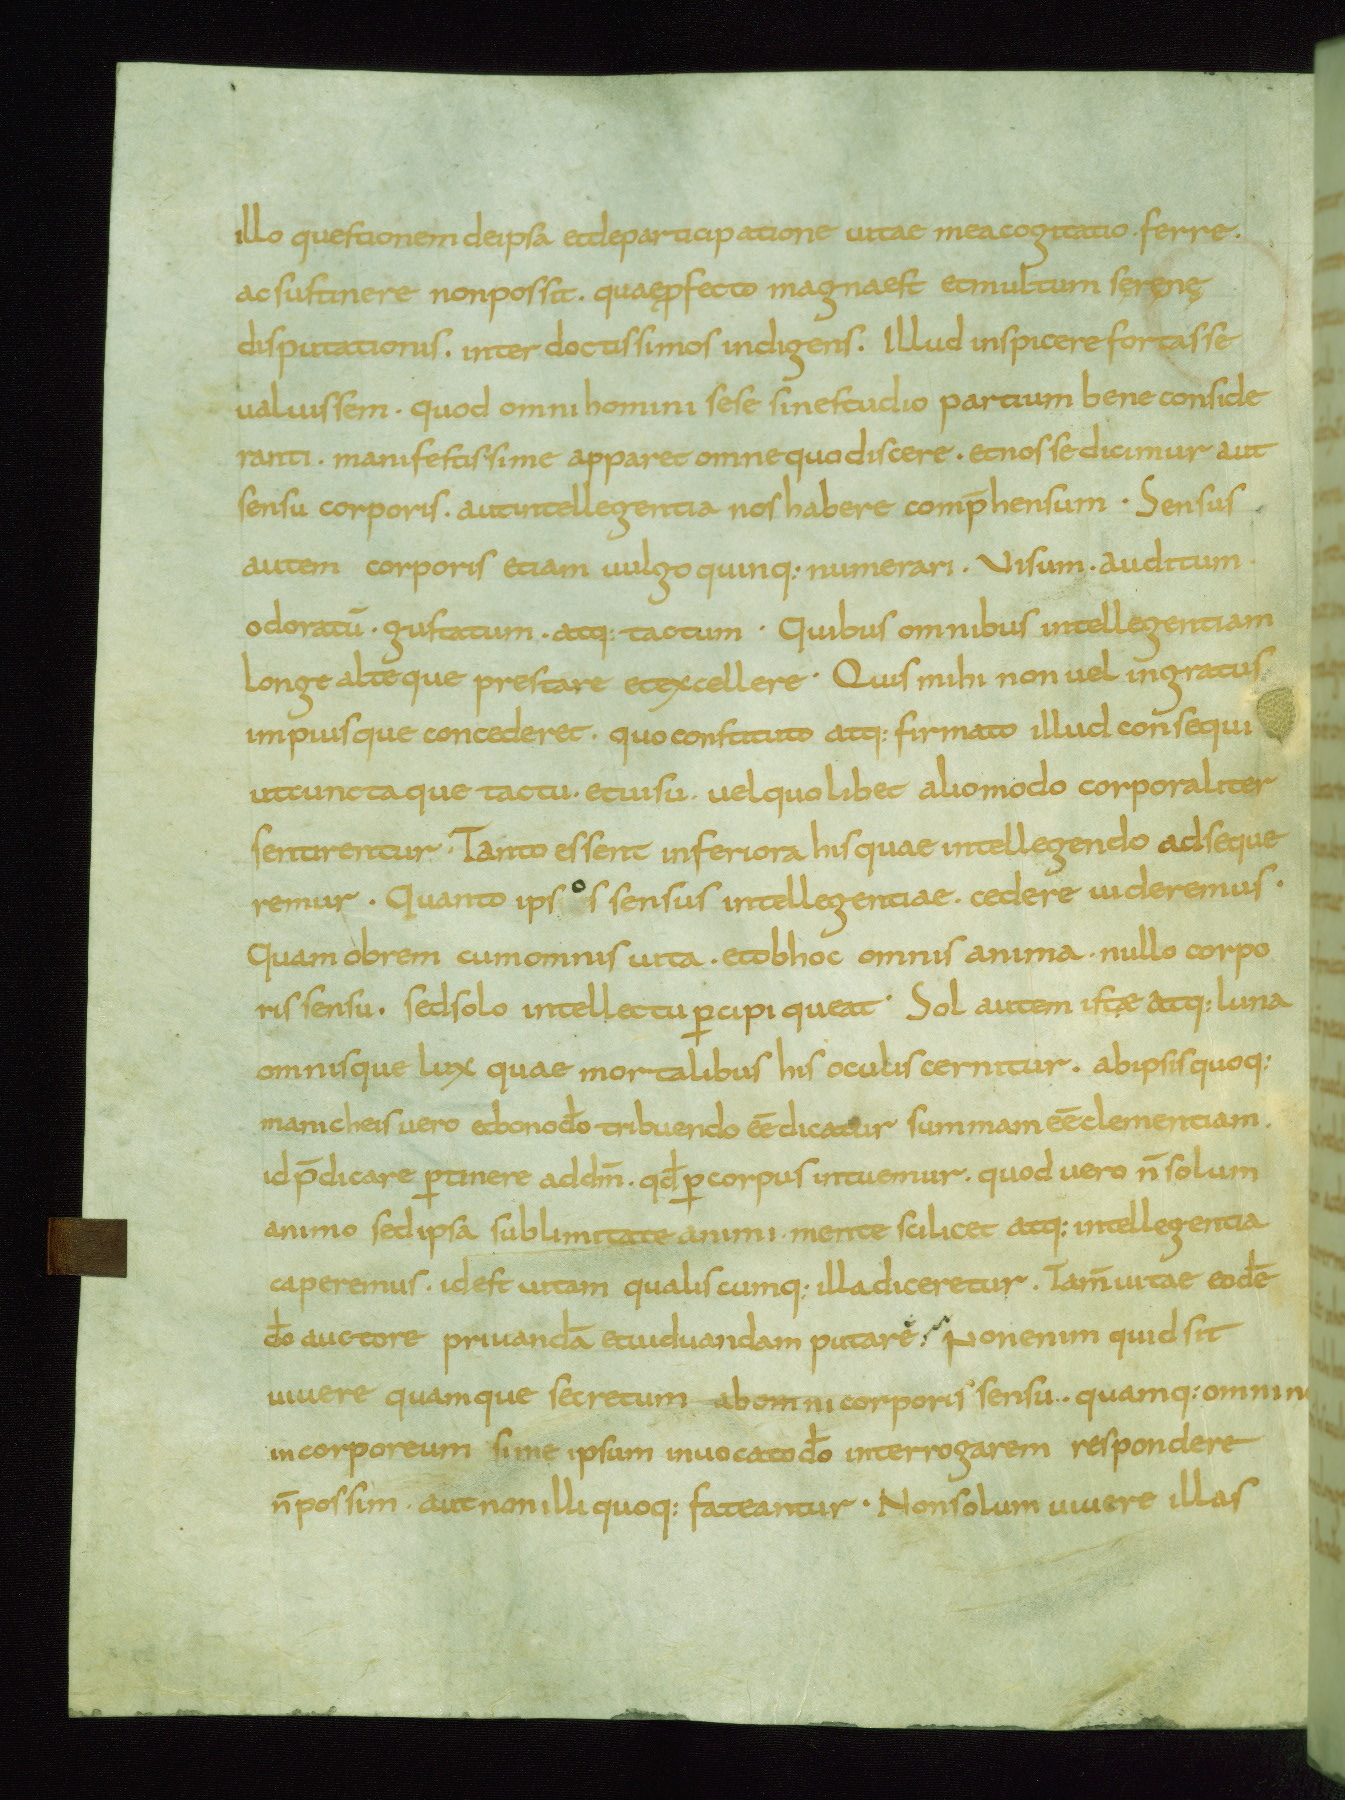 illo questionem deipsa etdeparticipatione uitae meacogitatio · ferre ·
acsustinere nonpossit · quaęp̄fecto magnaest etmultum sęręnę
disputationis · inter doctissimos indigens · Illud inspicerefortasse
ualuissem · quod omnihomini sese sinestudio partium bene conside
ranti · manifestissime apparet omnequodiscere · etnossedicimur aut
sensu corporis · autintellegentia nos habere comp̄hensum · Sensus
autem corporis etiam uulgo quinq: numerari · Visum · auditum ·
odoratū · gustatum · atq: tactum · Quibus omnibus intellegentiam
longe alteque prestare etexcellere · Quis mihi non uel ingratus
impiusque concederet · quoconstituto atq: firmato illud consequi
utcunctaque tactu · etuisu · uelquolibet aliomodo corporaliter
sentirentur · Tanto essent inferiora hisquae intellegendo adseque
remur · Quanto ipsos sensus intellegentiae · cedere uideremus ·
Quamobrem cumomnis uita · etobhoc omnis anima · nullo corpo
ris sensu · sedsolo intellectu p̱cipi queat · Sol autem istæ atq: luna
omnisque lux quae mortalibus his oculis cernitur · abipsisquoq:
manicheisuero etbonodō tribuendo eēdicatur summam eēclementiam ·
idp̄dicare p̱tinere addm̄ · qđp̱corpus intuemur · quod uero n̄ solum
animo sedipsa sublimitate animi · mente scilicet atq: intellegentia
caperemus · idest uitam qualiscumq: illa diceretur · Tam̄ uitae eodē
dō auctore priuandā etuiduandam putare · Nonenim quid sit
uiuere quamque secretum abomni corporis sensu · quamq: omnino
incorporeum sime ipsum inuocatodō interrogarem respondere
n̄possim · autnonilli quoq: fateantur · Nonsolum uiuere illas